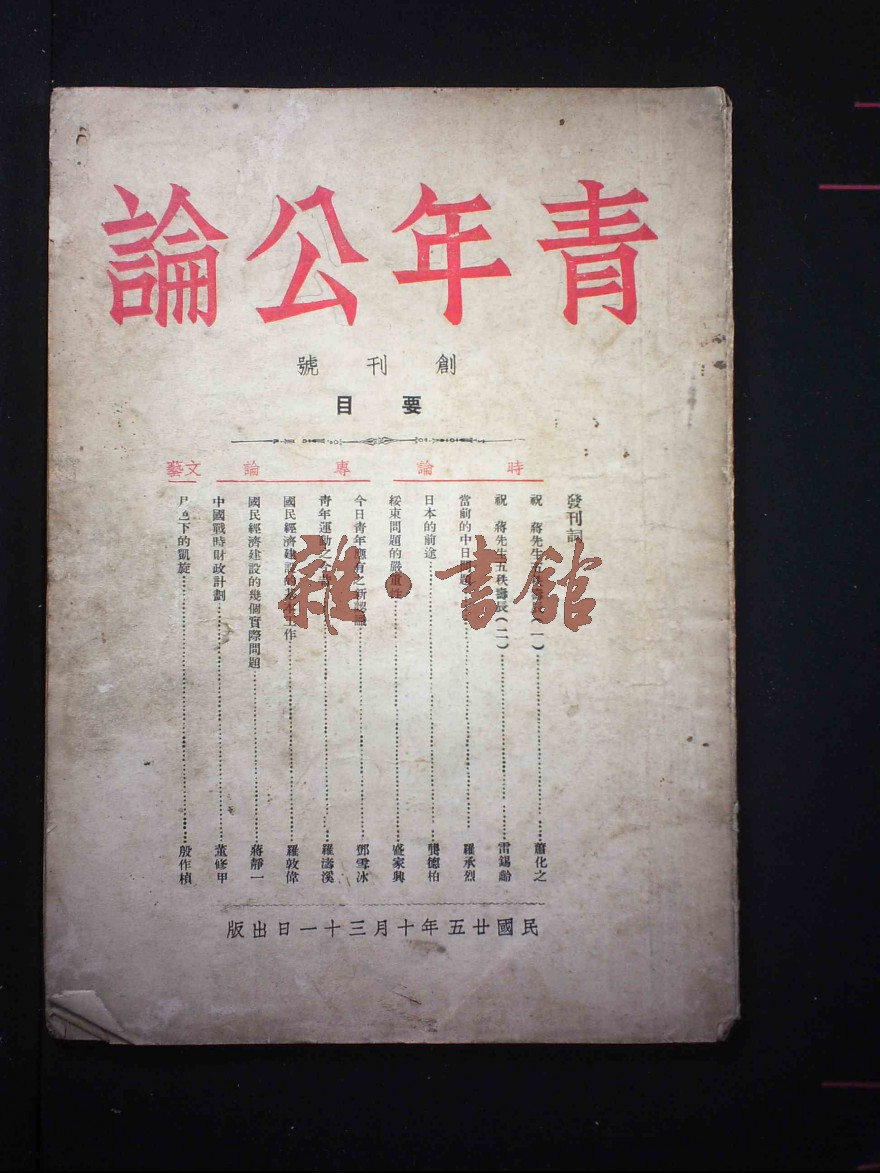 青年公論
創刊號
要目
時論
專論
文藝
發刊詞
祝 蔣先生五秩壽辰(一)蕭化之
祝 蔣先生五秩壽辰(二)雷錫齡
當前的中日問題 羅承烈
日本的前途 龔德柏
綏東問題的嚴重性 盛家興
今日青年應有之新認識 鄧雪冰
青年運動之 羅濤溪
國民經濟建設的基本工作 羅敦偉
國民經濟建設的幾個實際問題 蔣靜一
中國戰時財政計劃 董修甲
下的凱旋 殷作楨
民國廿五年十月三十一日出版
雜·書館